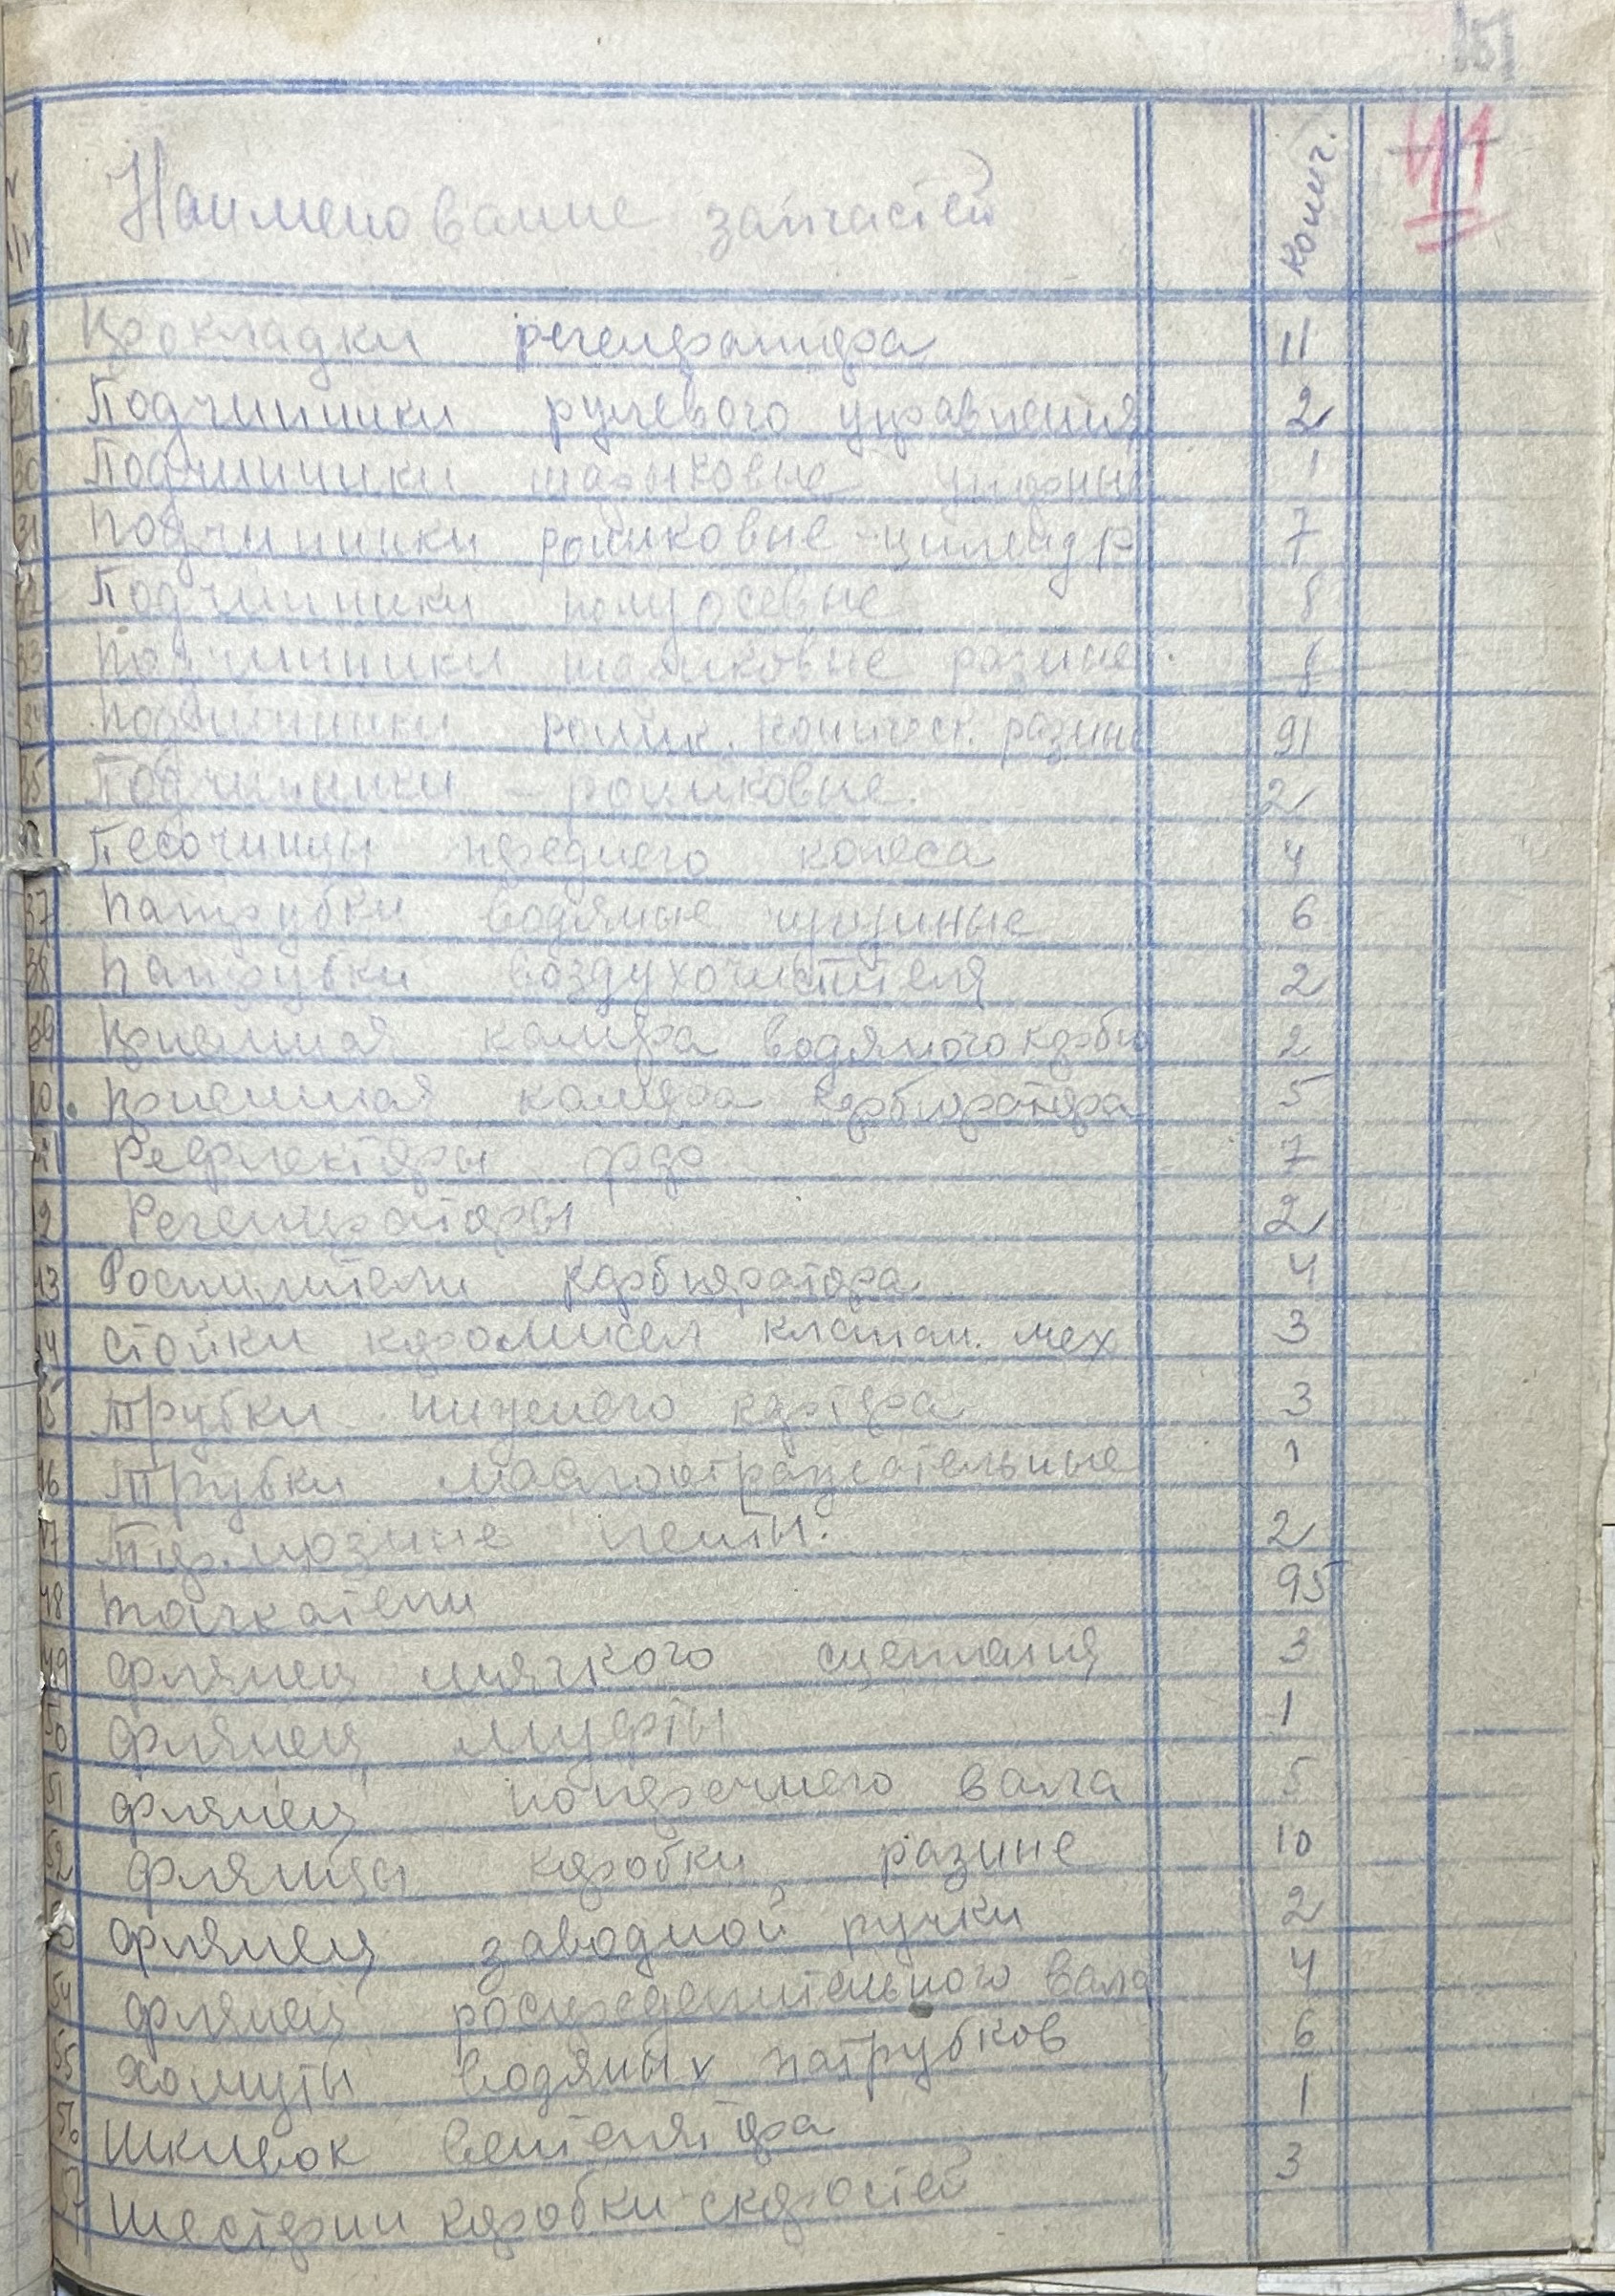 41
Наименование запчастей колич.
28 Прокладки регенератора 11
29 Подчипники рулевого управления 2
30 Подчипники шарыковые упорные 1
31 Подчипники роликовые - цилендр 7
32 Подчипники полуосевые 8
33 Подчипники шариковые разные 8
34 Подчипники ролик. коническ. разные 91
35 Подчипники - роликовые 2
36 Песочницы преднего колеса 4
37 Патрубки водяные чугуные 6
38 Патрубки воздухочистителя 2
39 Приемная камера водяного карбю 2
40 Приемная камера карбюратора 5
41 Рефлекторы фар 7
42 Регенираторы 2
43 Роспилители карбюратора 4
44 Стойки коромисел клапан. мех 3
45 Трубки нижнего картера 3
46 Трубки маслоотражательные 1
47 Тормозние ленты. 2
48 Толкатели 95
49 Флянец мягкого сцепления 3
50 Флянец муфты 1
51 Флянец поперечного вала 5
52 Флянцы коробки разние 10
53 Флянец заводной ручки 2
54 Флянец роспределительного вала 4
55 Хомуты водяных патрубков 6
56 Шкивок вентелятора 1
57 Шестерни коробки скоростей 3